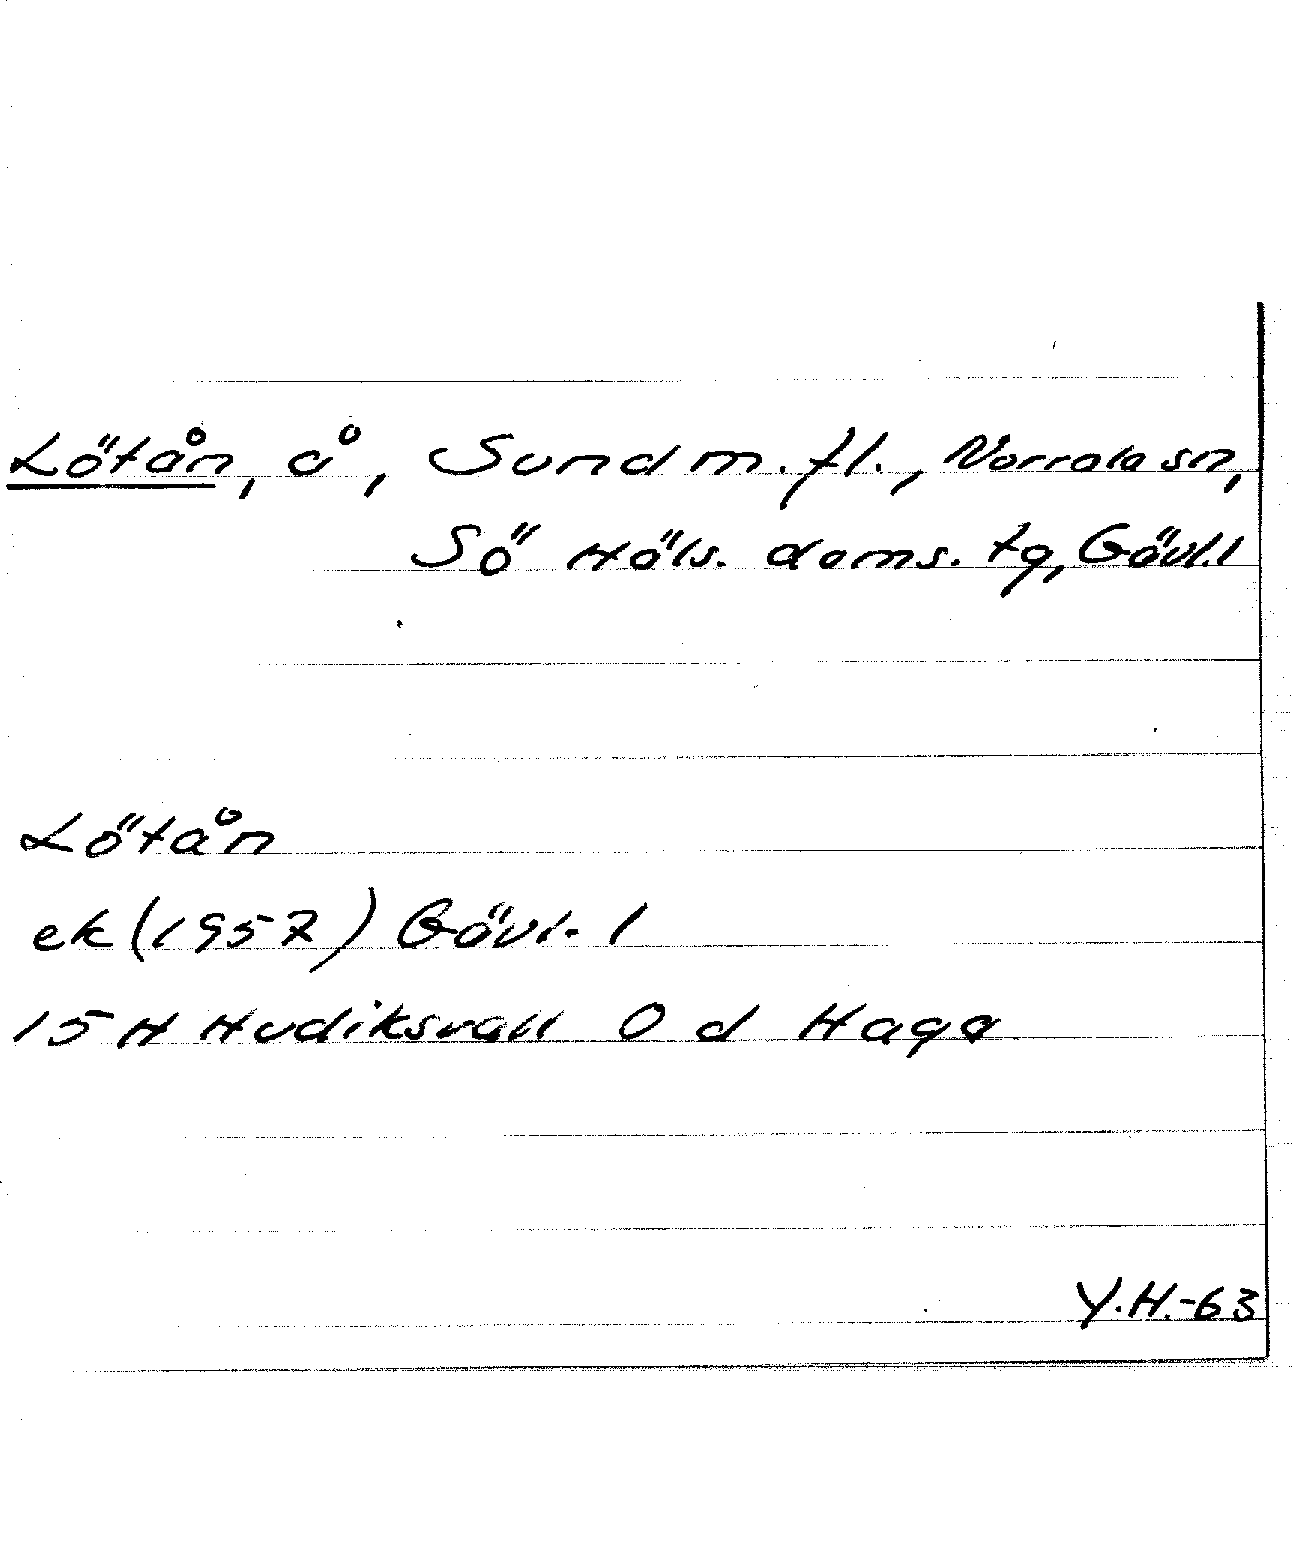 Lötån, å, Sund m.fl., Norrala sn,
Sö Häls. doms. tg, Gävl. l
Lötån
ek (1957) Gävl. l
15 H Hudiksvall 0 d Haga
Y.H.-63